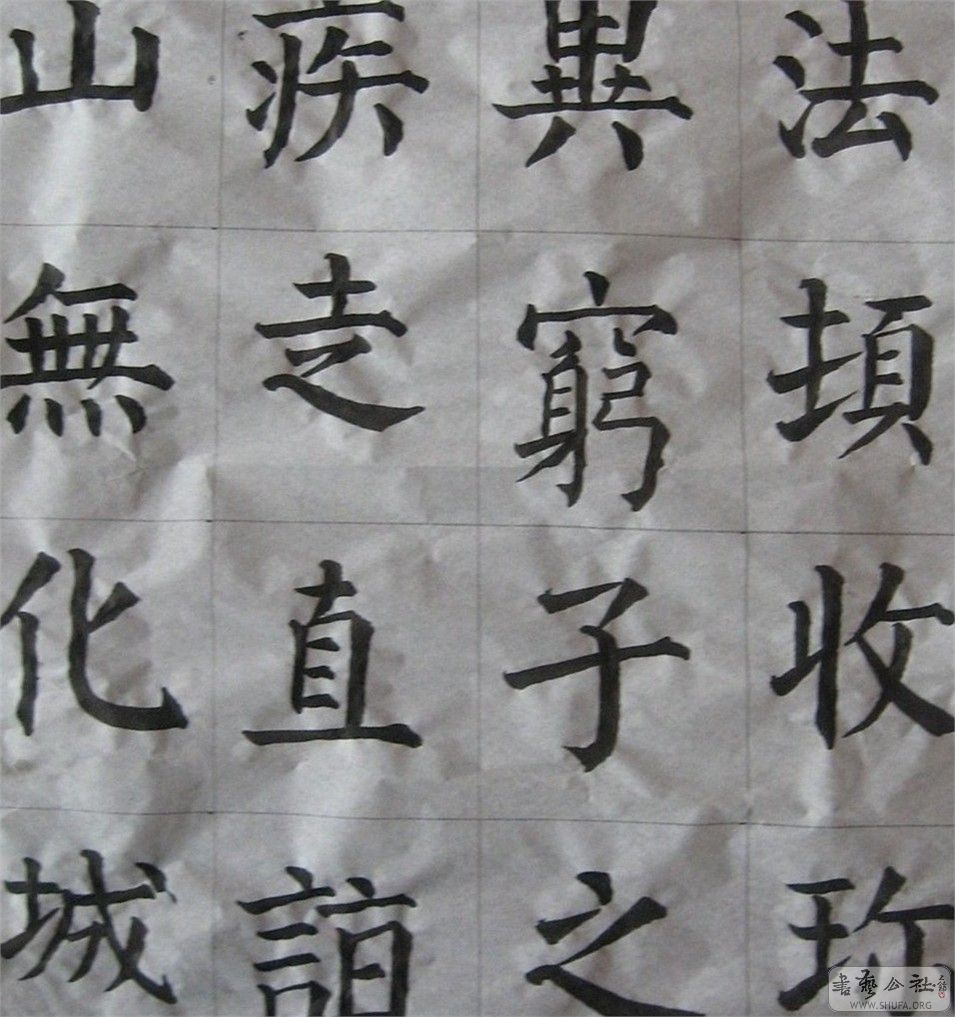 法頓收珍
異窮子之
疾走直詣
山無化城
書藝公社
WWW.SHUFA.ORG